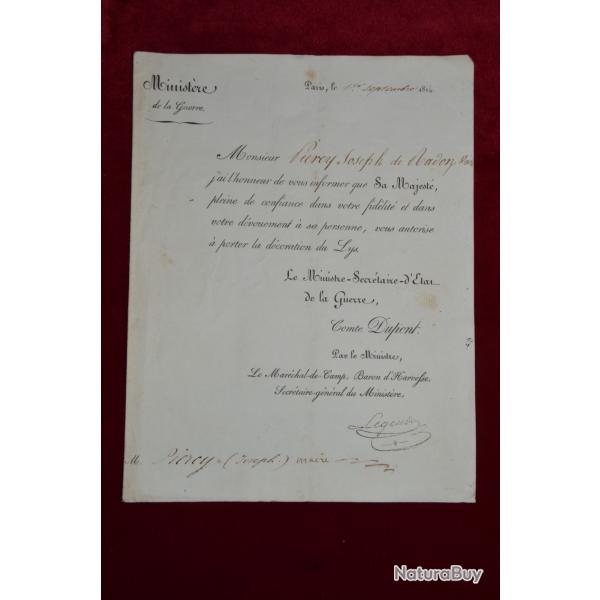 Ministère
de la Guerre.
Paris, le 1er septembre 1814.
Monsieur Piercy Joseph de
j'ai l'honneur de vous informer que Sa Majesté,
pleine de confiance dans votre fidélité et dans
votre dévouement à sa personne, vous autorise
à porter la décoration du Lys.
Le Ministre-Secrétaire-d'Etat
de la Guerre,
Comte Dupont.
Par le Ministre,
Le Maréchal-de-Camp, Baron d'Harvesse,
Secrétaire-général du Ministère,
M. Piercy (Joseph) maire
NaturaBuy